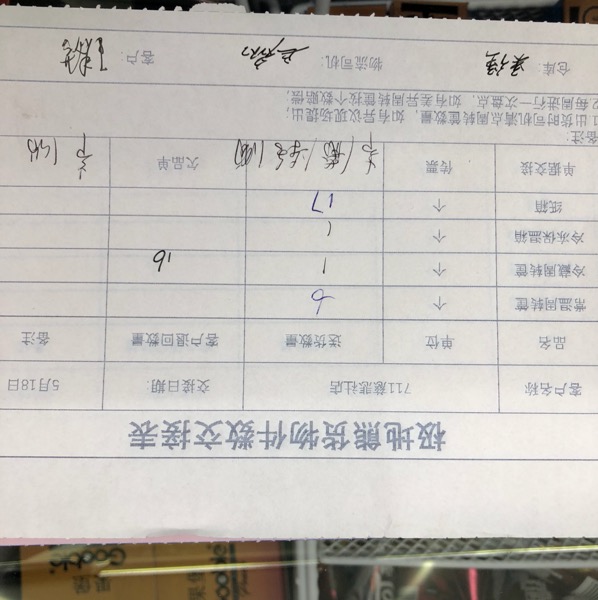 极地熊货物件数交接表
客户名称 711慈悲社店 交接日期: 5月18日
品名 单位 送货数量 客户退回数量 备注
常温周转筐 个 6
冷藏周转筐 个 1 16
冷冻保温箱 个 1
纸箱 个 17
单据交接 传票 欠品单
备注:
1 出货时司机清点周转筐数量,如有异议现场提出;
2 每周进行一次盘点,如有差异周转筐按个数赔偿;
仓库: 物流司机: 客户: